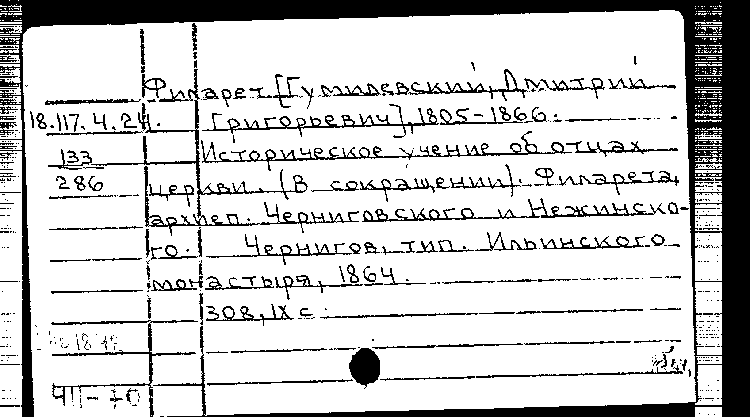 Филарет [Гумилевский, Дмитрий
18.117.4.24. Григорьевич], 1805-1866.
133 Историческое учение об отцах
286 церкви. (В сокращении). Филарета,
архиеп. Черниговского и Нежинско-
го. Чернигов, тип. Ильинского
монастыря, 1864.
308, IX с.